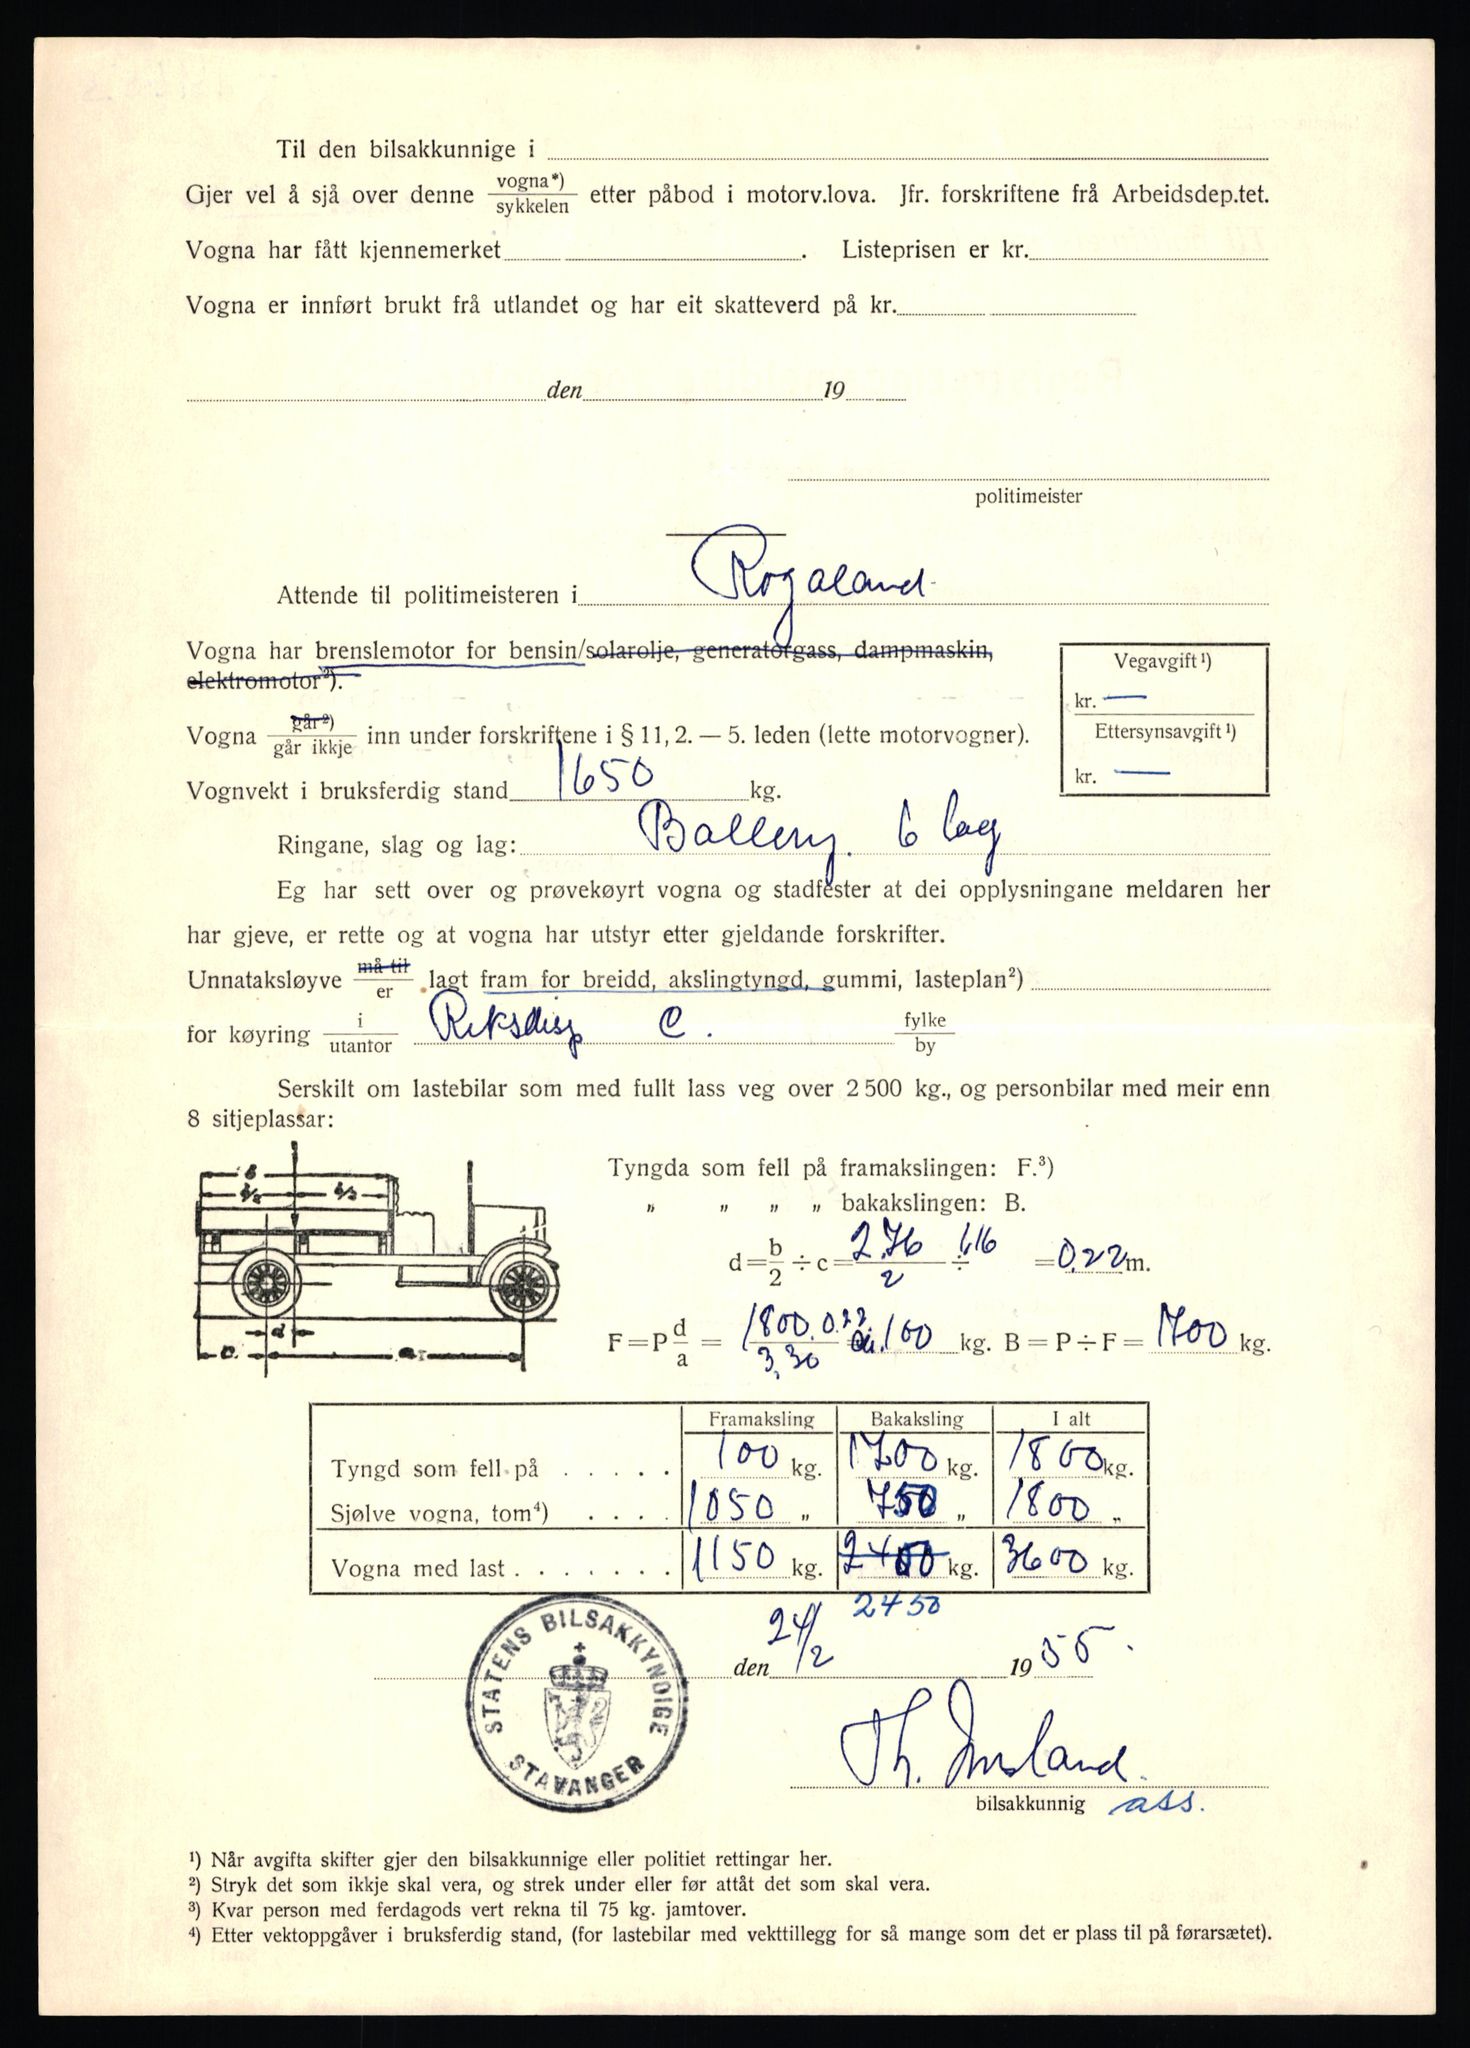 Til den bilsakkunnige i
Gjer vel å sjå over denne vogna*) / sykkelen etter påbod i motorv.lova. Jfr. forskriftene frå Arbeidsdep.tet.
Vogna har fått kjennemerket . Listeprisen er kr.
Vogna er innført brukt frå utlandet og har eit skatteverd på kr.
den 19
politimeister
Attende til politimeisteren i Rogaland
Vogna har brenslemotor for bensin/solarolje, generatorgass, dampmaskin,
elektromotor²).
Vegavgift ¹)
kr. —
Ettersynsavgift ¹)
kr. —
Vogna går ²) / går ikkje inn under forskriftene i § 11, 2. — 5. leden (lette motorvogner).
Vognvekt i bruksferdig stand 1650 kg.
Ringane, slag og lag: Ballong. 6 lag
Eg har sett over og prøvekøyrt vogna og stadfester at dei opplysningane meldaren her
har gjeve, er rette og at vogna har utstyr etter gjeldande forskrifter.
Unnataksløyve må til / er lagt fram for breidd, akslingtyngd, gummi, lasteplan²)
for køyring i / utantor Riksdisp C. fylke / by
Serskilt om lastebilar som med fullt lass veg over 2 500 kg., og personbilar med meir enn
8 sitjeplassar:
b
b/2 b/2
d
c. a
Tyngda som fell på framakslingen: F.³)
" " " " bakakslingen: B.
d = b/2 ÷ c = 2,76/2 ÷ 1,16 = 0,22 m.
F = P d/a = 1800. 0.22 / 3,30 100 kg. B = P ÷ F = 1700 kg.
Framaksling Bakaksling I alt
Tyngd som fell på . . . . . 100 kg. 1700 kg. 1800 kg.
Sjølve vogna, tom⁴) . . . . 1050 " 750 " 1800 "
Vogna med last . . . . . . . 1150 kg. 2400 kg. 3600 kg.
2450
den 24/2 1955.
STATENS BILSAKKYNDIGE
STAVANGER
Th.
bilsakkunnig ass.
¹) Når avgifta skifter gjer den bilsakkunnige eller politiet rettingar her.
²) Stryk det som ikkje skal vera, og strek under eller før attåt det som skal vera.
³) Kvar person med ferdagods vert rekna til 75 kg. jamtover.
⁴) Etter vektoppgåver i bruksferdig stand, (for lastebilar med vekttillegg for så mange som det er plass til på førarsætet).